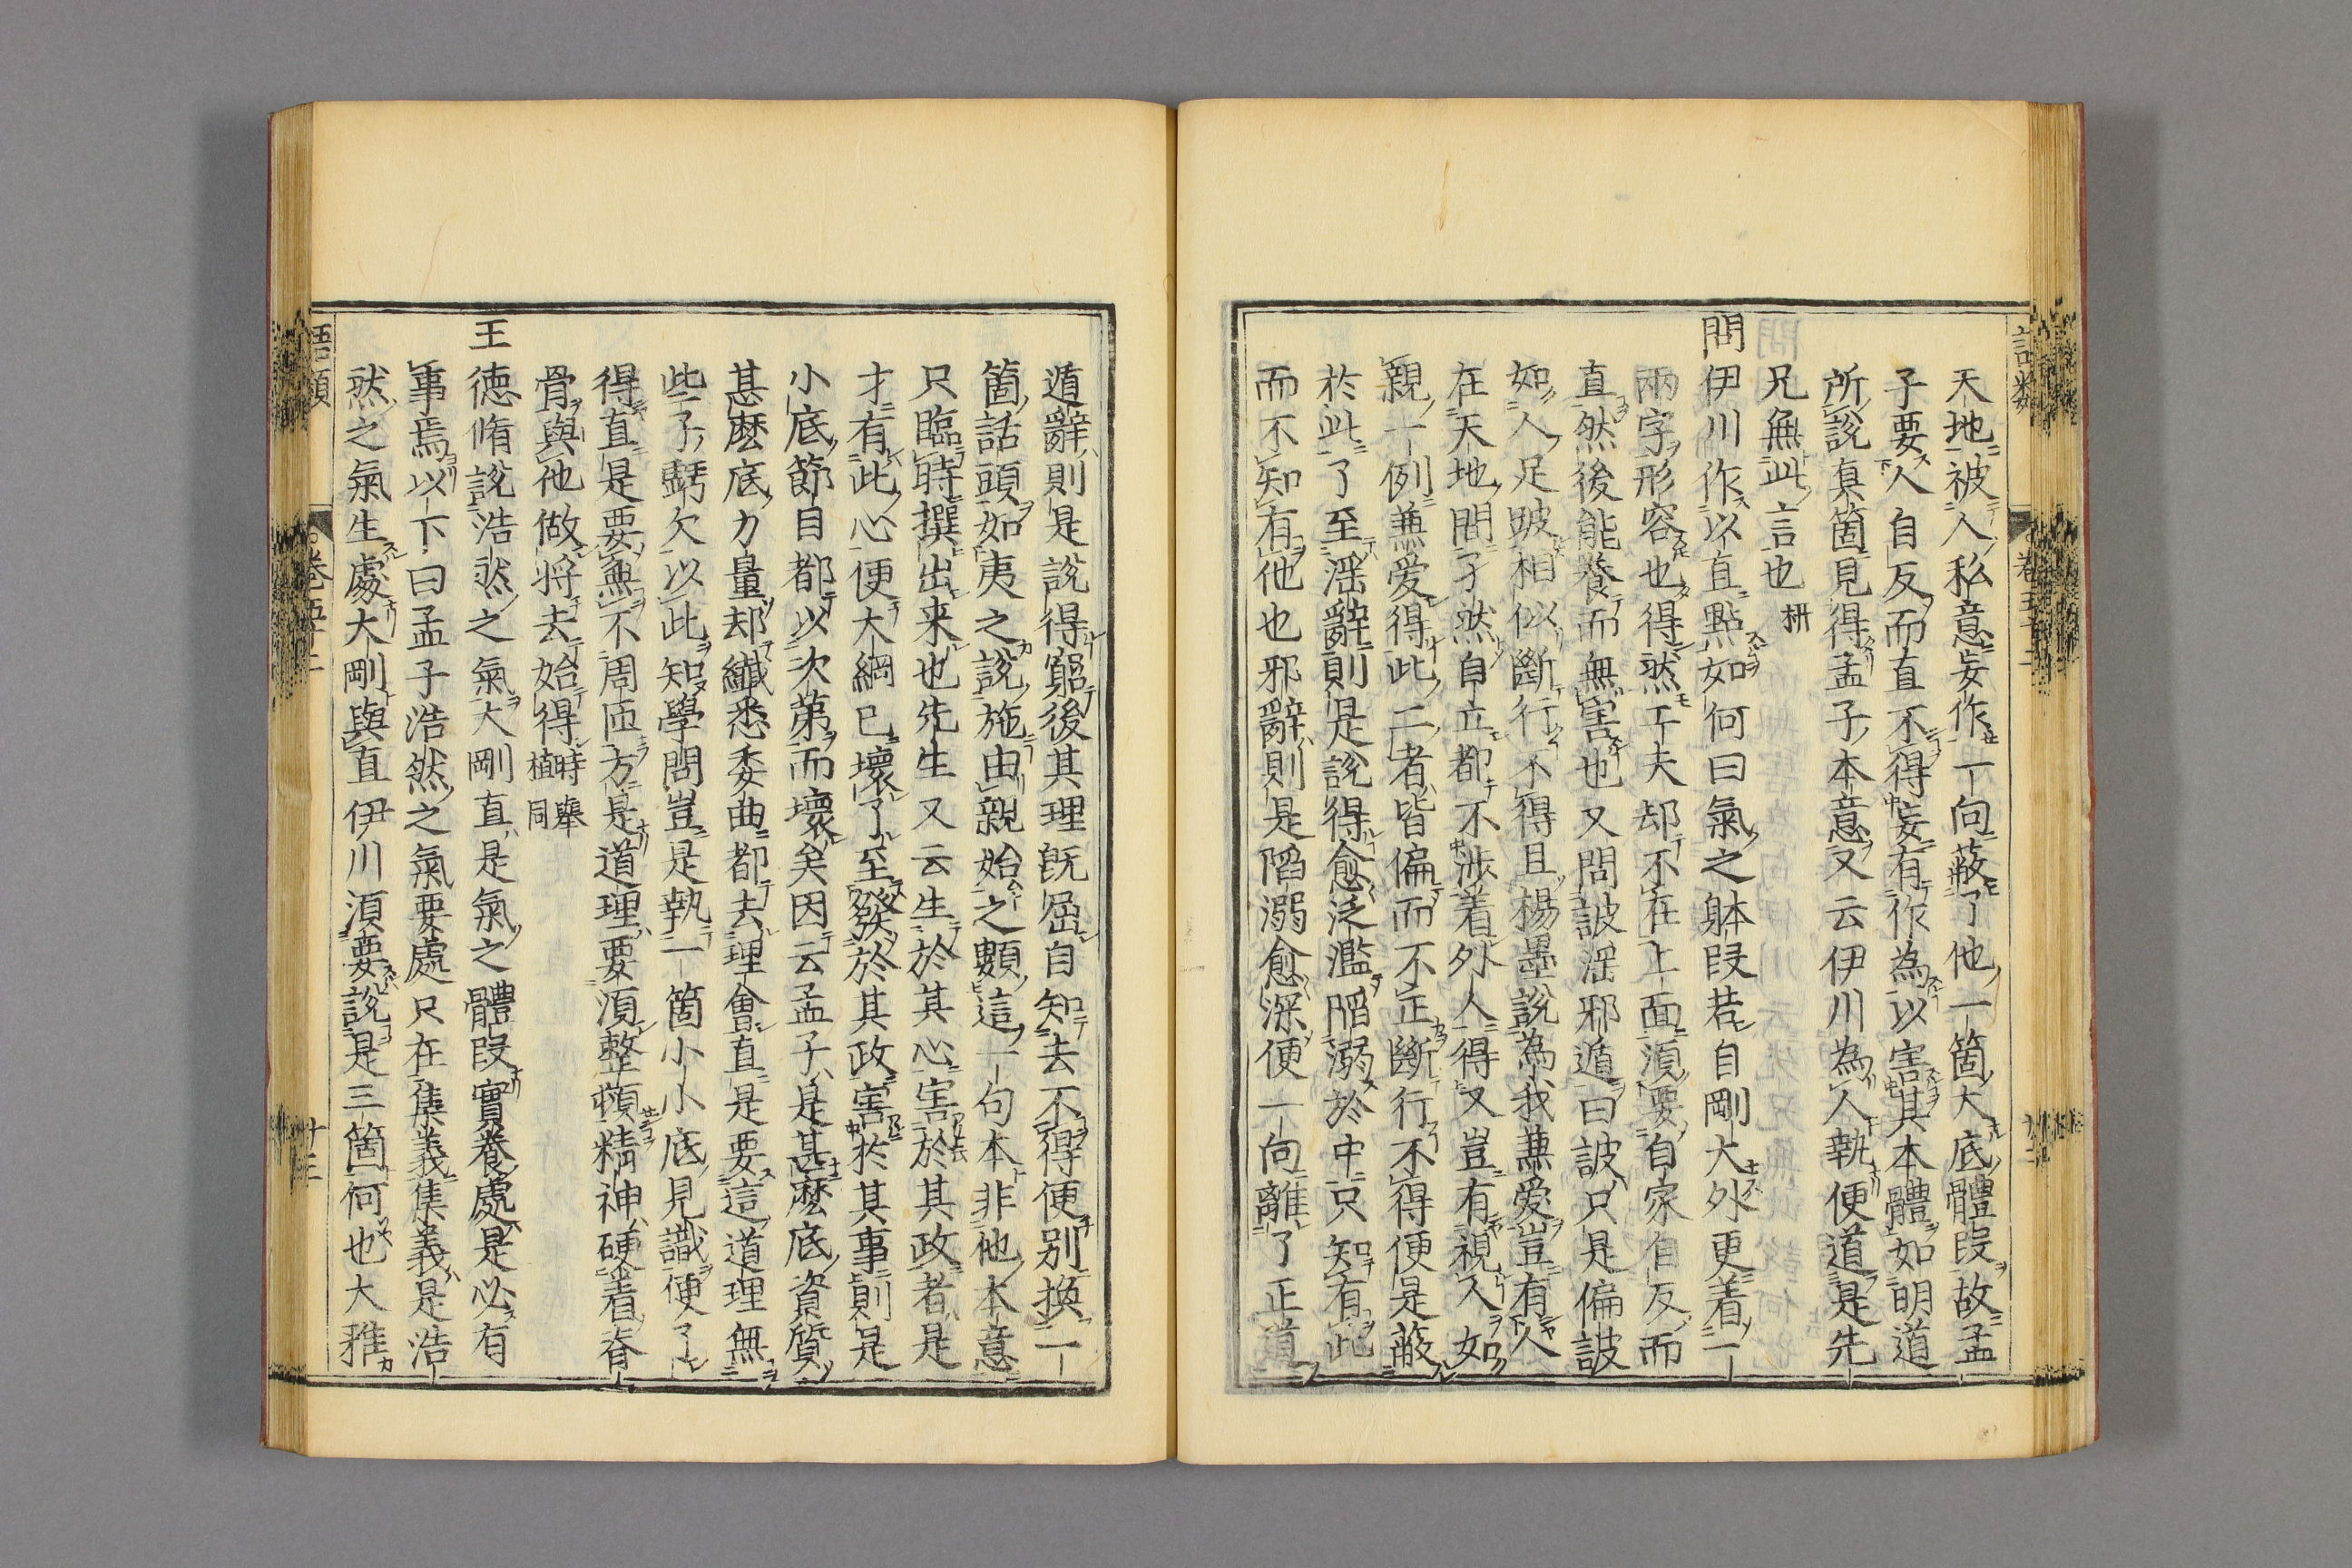 天地被人私意妄作一向蔽了他一箇大底體段故孟
子要人自反而直不得妄有作為以害其本體如明道
所說真箇見得孟子本意又云伊川為人執便道是先
兄無此言也 㽦
問伊川作以直點如何曰氣之躰段若自剛大外更着一
兩字形容也得然工夫却不在上面須要自家自反而
直然後能養而無害也又問詖淫邪遁曰詖只是偏詖
如人足跛相似斷行不得且楊墨說為我兼愛豈有人
在天地間孑然自立都不涉着外人得又豈有視人如
親一例兼愛得此二者皆偏而不正斷行不得便是蔽
於此了至淫辭則是說得愈泛濫陷溺於中只知有此
而不知有他也邪辭則是陷溺愈深便一向離了正道
遁辭則是說得窮後其理既屈自知去不得便別換一
箇話頭如夷之說施由親始之類這一句本非他本意
只臨時撰出来也先生又云生於其心害於其政者是
才有此心便大綱已壞了至發於其政害於其事則是
小底節目都以次第而壞矣因云孟子是甚麼底資質
甚麼底力量却纖悉委曲都去理會直是要這道理無
些子虧欠以此知學問豈是執一箇小小底見識便了
得直是要無不周匝方是道理要須整頓精神硬着脊
骨與他做将去始得 時舉 植同
王德脩說浩然之氣大剛直是氣之體段實養處是必有
事焉以下曰孟子浩然之氣要處只在集義集義是浩
然之氣生處大剛與直伊川須要說是三箇何也大雅
語類 卷五十二 十三